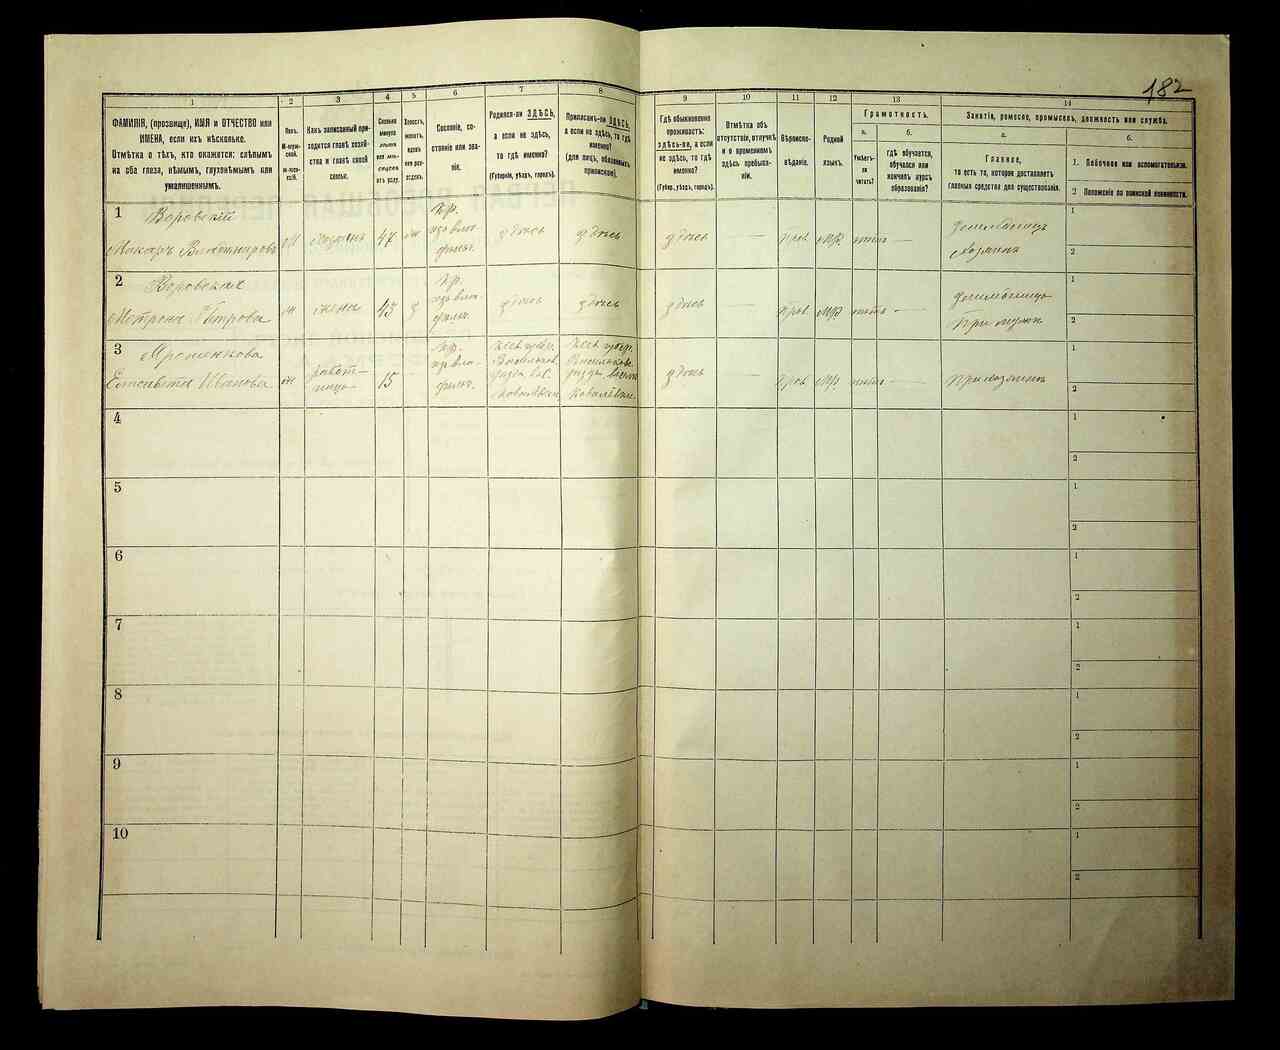 182
1
2
3
4
5
6
7
8
9
10
11
12
13
14
ФАМИЛІЯ, (прозвище), ИМЯ и ОТЧЕСТВО или
ИМЕНА, если ихъ нѣсколько.
Отмѣтка о тѣхъ, кто окажется: слѣпымъ
на оба глаза, нѣмымъ, глухонѣмымъ или
умалишеннымъ.
Полъ.
М-мужской.
Ж-женскій.
Какъ записанный приходится главѣ хозяйства и главѣ своей
семьи.
Сколько
минуло
лѣтъ
или мѣсяцевъ
отъ роду.
Холостъ,
женатъ,
вдовъ
или разведенъ.
Сословіе, состояніе или званіе.
Родился-ли ЗДѢСЬ,
а если не здѣсь,
то гдѣ именно?
(Губернія, уѣздъ, городъ).
Приписанъ-ли ЗДѢСЬ,
а если не здѣсь, то гдѣ
именно?
(для лицъ, обязанныхъ
припискою).
Гдѣ обыкновенно
проживаетъ:
здѣсь-ли, а если
не здѣсь, то гдѣ
именно?
(Губер., уѣздъ, городъ).
Отмѣтка объ
отсутствіи, отлучкѣ
и о временномъ
здѣсь пребываніи.
Вѣроисповѣданіе.
Родной
языкъ.
Грамотность.
а.
Умѣетъ-ли
читать?
б.
гдѣ обучается,
обучался или
кончилъ курсъ
образованія?
Занятіе, ремесло, промыселъ, должность или служба.
а.
Главное,
то есть то, которое доставляетъ
главныя средства для существованія.
б.
1. Побочное или вспомогательное.
2 Положеніе по воинской повинности.
1
Воровскій
Макаръ
М
хозяинъ
47
ж
Кр.
изъ вла-
здѣсь
здѣсь
здѣсь
—
Прав
МР
нѣтъ
—
Хозяинъ
1
2
2
Воровская
Петрова
ж
жена
43
з
Кр.
изъ вла-
здѣсь
здѣсь
здѣсь
—
Прав
МР
нѣтъ
—
При мужѣ
1
2
3
Елисавета Иванова
ж
работ-
ница
15
—
Кр.
изъ вла-
Кіев. губер.
Васильков.
уѣзда
Кіев. губер.
уѣзда
здѣсь
—
Прав
МР
нѣтъ
—
При хозяинѣ
1
2
4
1
2
5
1
2
6
1
2
7
1
2
8
1
2
9
1
2
10
1
2